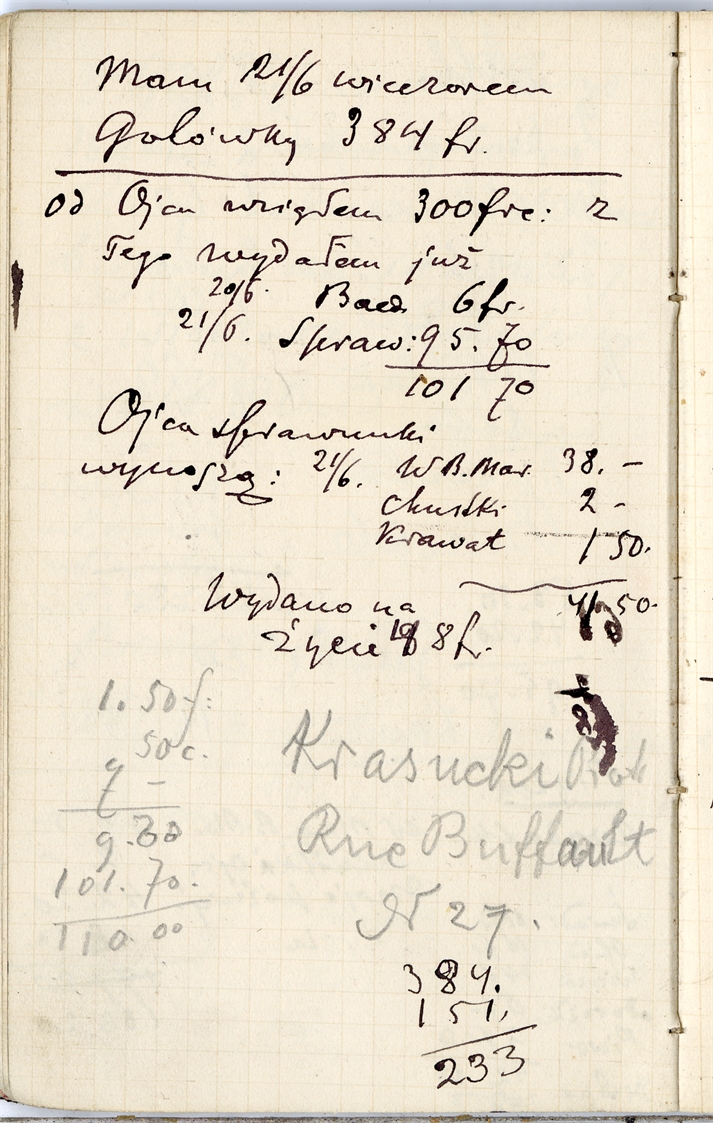 Mam 21/6 wieczorem
Gotówky 384 fr.
od Ojca wziąłem 300 frc: z
Tego wydałem już
20/6. 6 fr.
21/6. Spraw: 95. 70
101 70
Ojca sprawunki
wynoszą: 21/6. W B. Mar. 38. –
chustki 2 -
Krawat 1 50.
41. 50.
Wydano na
Życie 8 fr.
1. 50 f:
50 c.
7 –
101. 70.
110. 00
Krasucki
Rue Buffault
N 27.
384.
151.
233